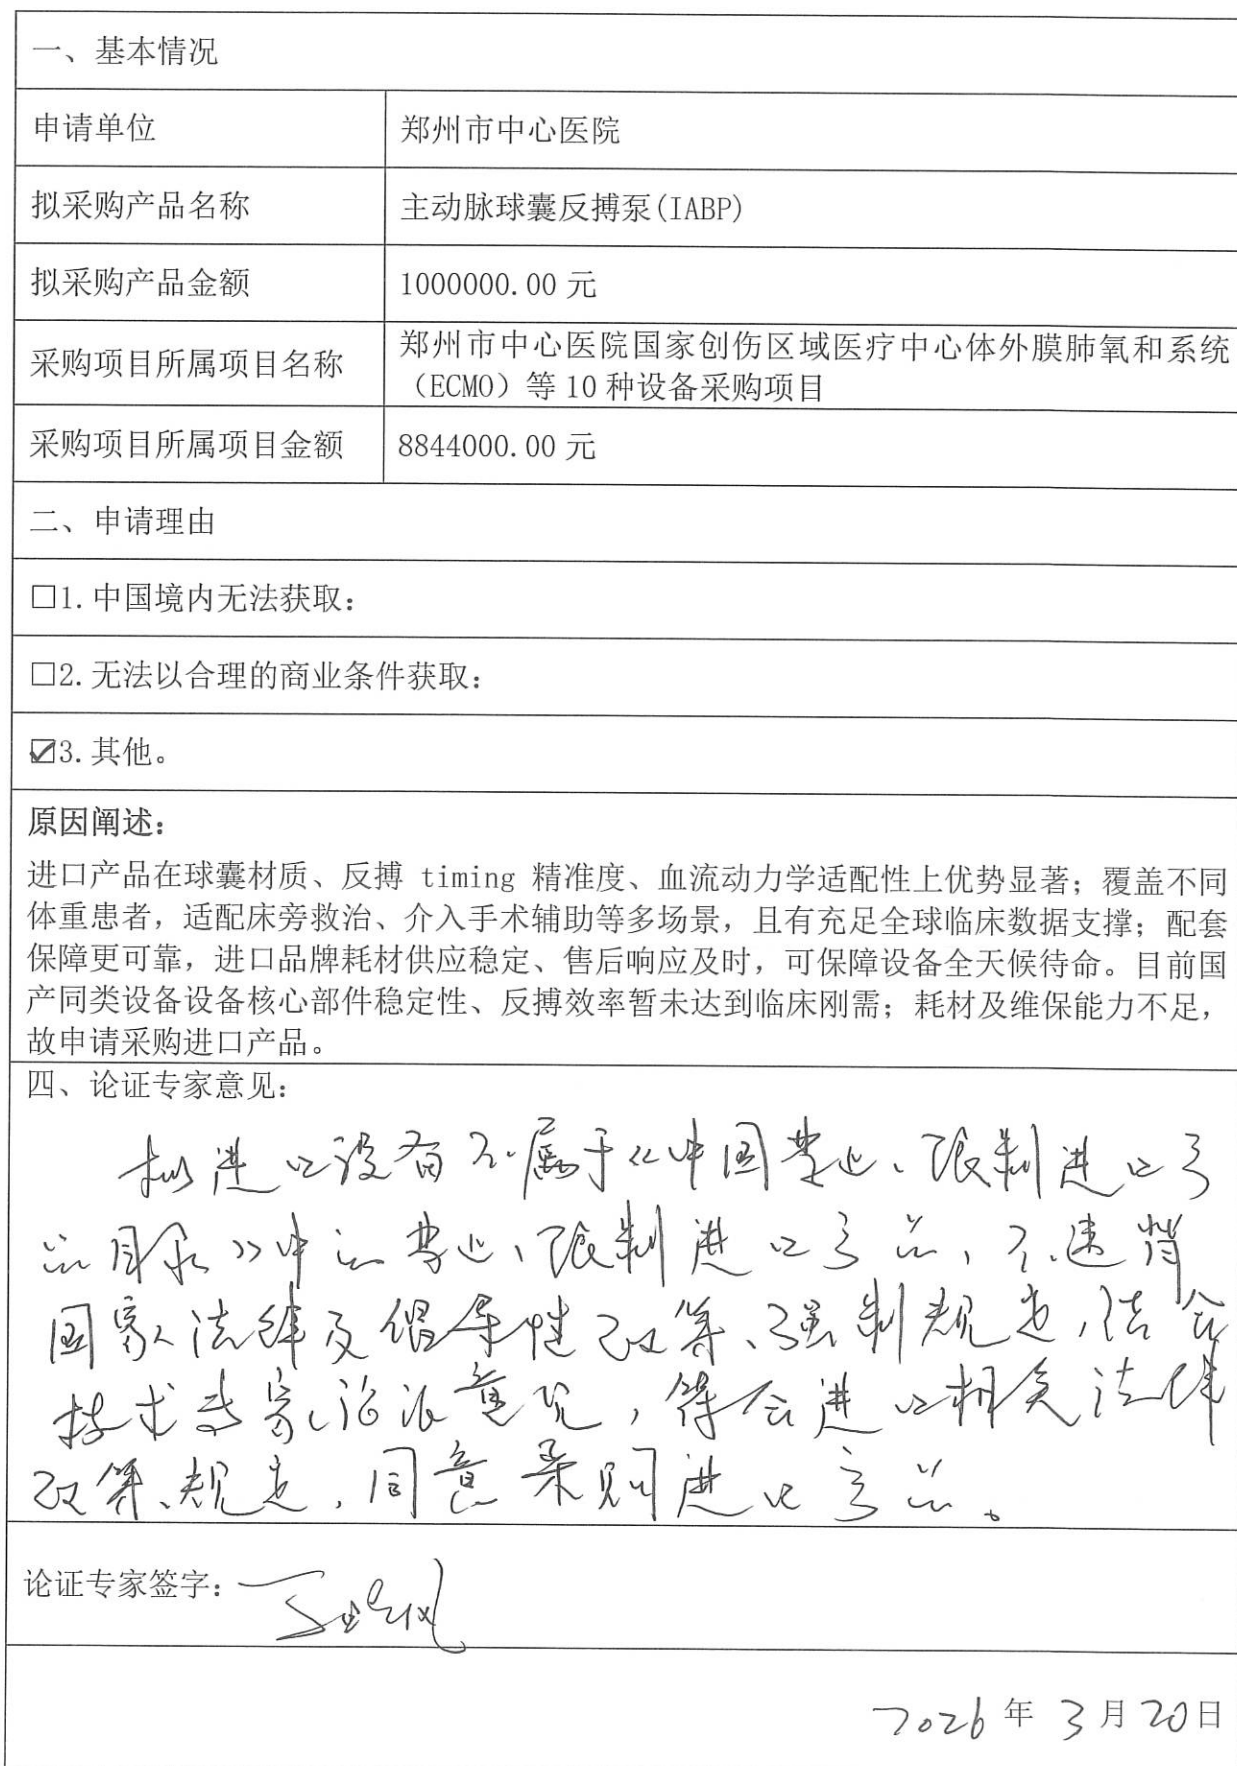 一、基本情况
申请单位
郑州市中心医院
拟采购产品名称
主动脉球囊反搏泵(IABP)
拟采购产品金额
1000000.00 元
采购项目所属项目名称
郑州市中心医院国家创伤区域医疗中心体外膜肺氧和系统
（ECMO）等 10 种设备采购项目
采购项目所属项目金额
8844000.00 元
二、申请理由
□1.中国境内无法获取：
□2.无法以合理的商业条件获取：
☑3.其他。
原因阐述：
进口产品在球囊材质、反搏 timing 精准度、血流动力学适配性上优势显著；覆盖不同
体重患者，适配床旁救治、介入手术辅助等多场景，且有充足全球临床数据支撑；配套
保障更可靠，进口品牌耗材供应稳定、售后响应及时，可保障设备全天候待命。目前国
产同类设备设备核心部件稳定性、反搏效率暂未达到临床刚需；耗材及维保能力不足，
故申请采购进口产品。
四、论证专家意见：
拟进口设备不属于《中国禁止、限制进口产
品目录》中的禁止、限制进口产品，不违背
国家法律及倡导性政策、强制规定，结合
技术专家论证意见，符合进口相关法律
政策、规定，同意采购进口产品。
论证专家签字：
2026年3月20日